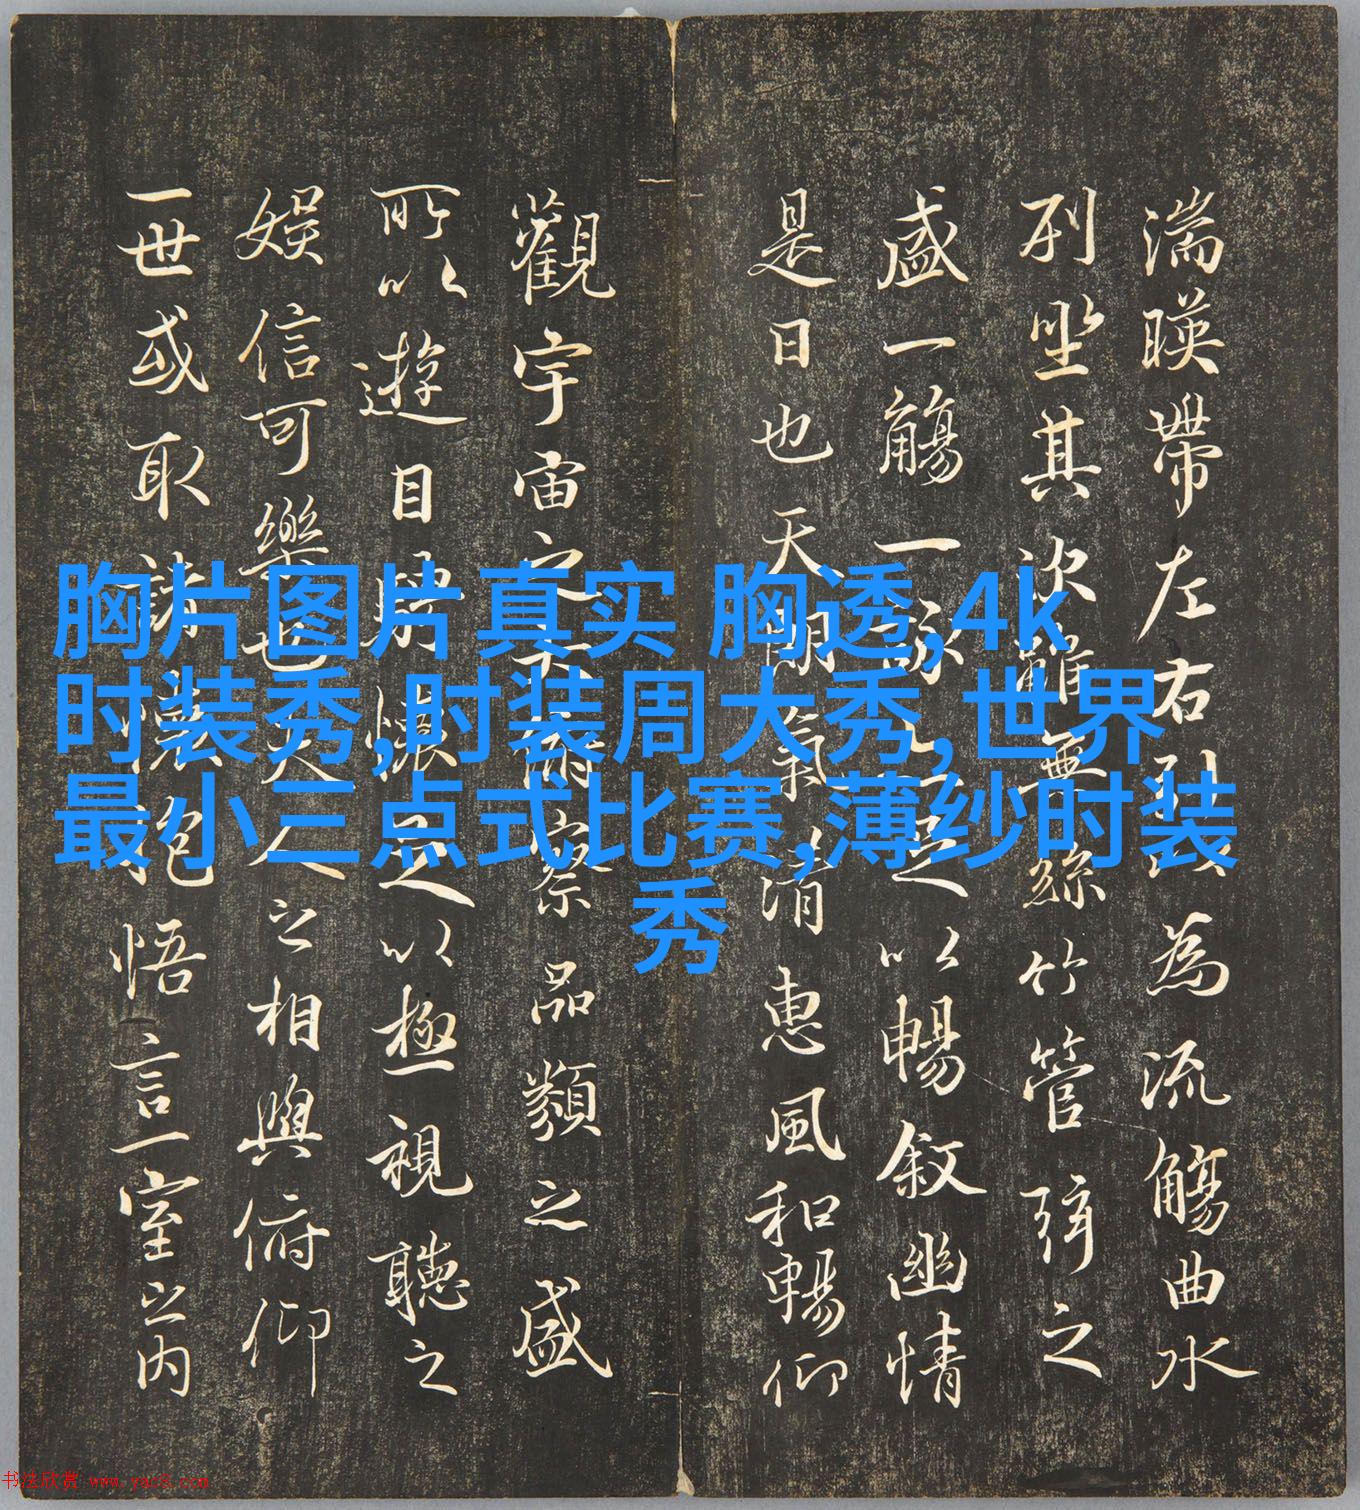 湍暎帶左右引以為流觴曲水
列坐其次雖無絲竹管弦之
盛一觴一詠亦足以暢敘幽情
是日也天朗氣清惠風和暢仰
觀宇宙之大俯察品類之盛
所以遊目騁懷足以極視聽之
娛信可樂也夫人之相與俯仰
一世或取諸懷抱悟言一室之内
胸片图片真实 胸透,4k
时装秀,时装周大秀,世界
最小三点式比赛,薄纱时装
秀
书法欣赏 www.yac8.com